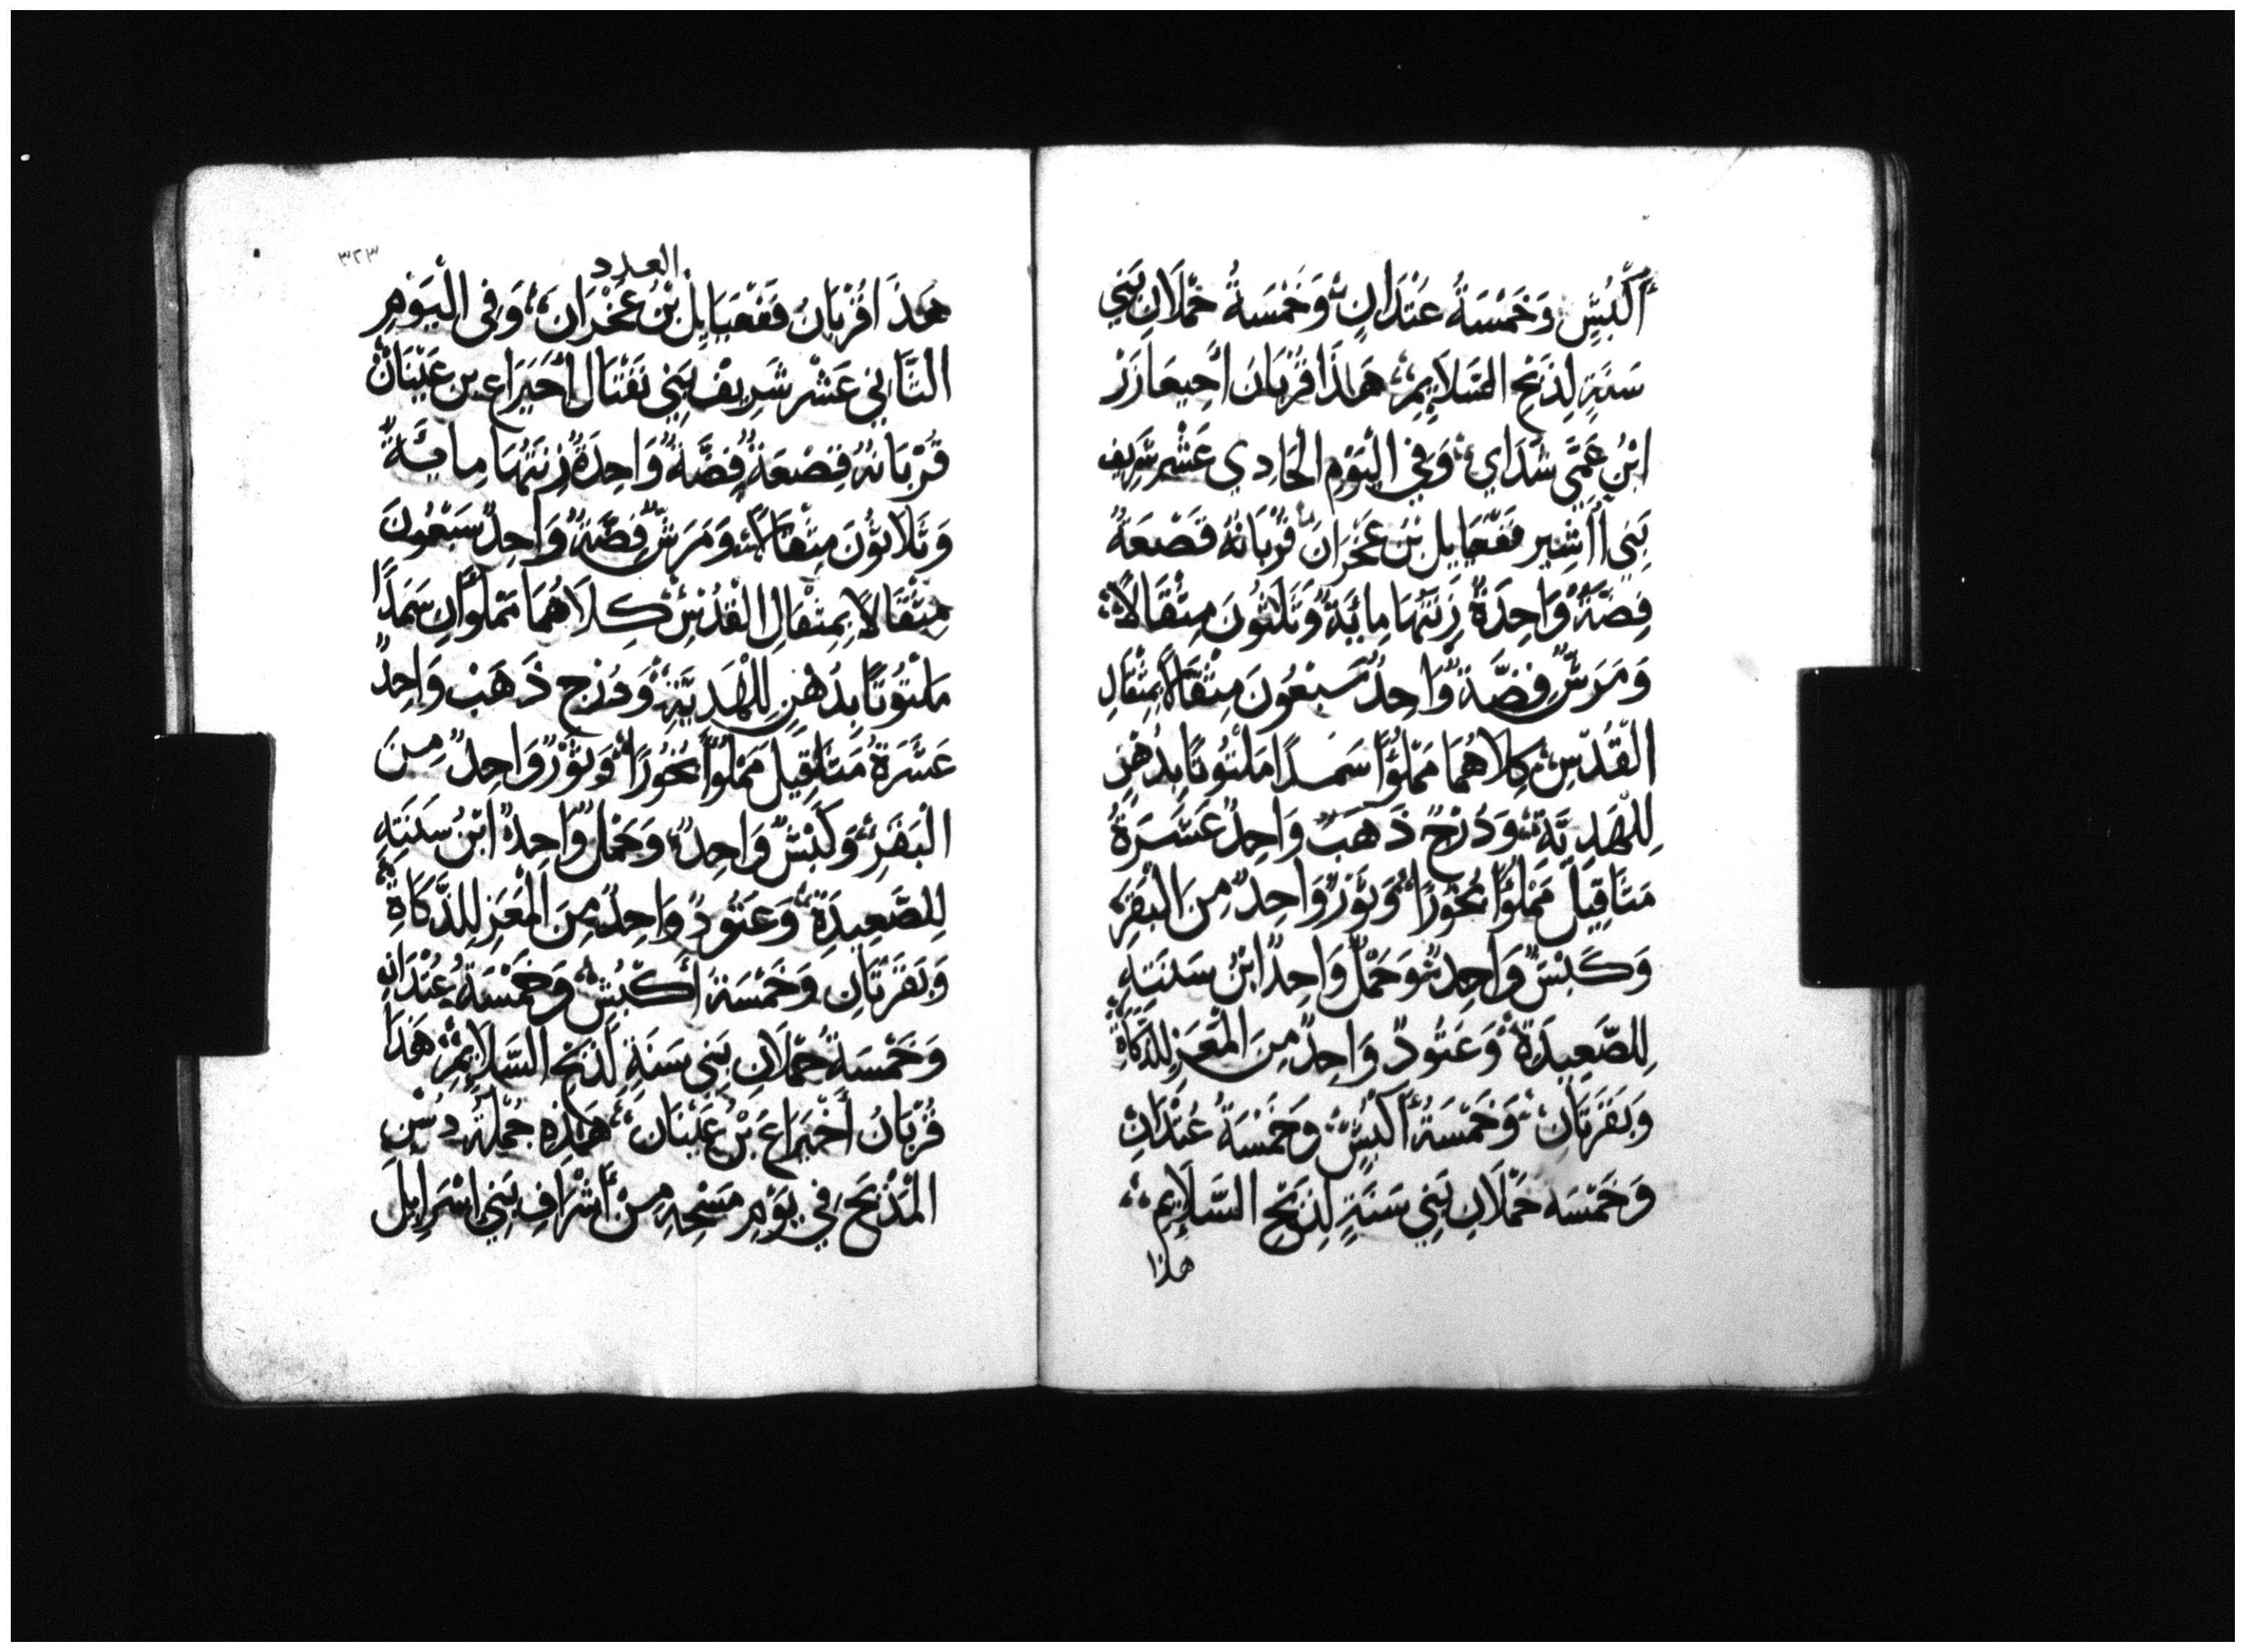 أَكْبُشٍ وَخَمْسَةُ عَتَدَانٍ وَخَمْسَةُ حَمْلَانِ بَنِي
سَنَةٍ لِذَبْحِ السَّلَايِمِ هَاذَا قُرْبَانُ أَحِيعَازَرْ
ابْنُ عَمِّي شَدَاي وَفِي الْيَوْمِ الْحَادِي عَشَرِ شَرِيف
بَنِي أَاشِير فَغْعِيَايل بْنِ عَخْرَان قُرْبَانُهُ قَصْعَةُ
فِضَّةٍ وَاحِدَةٌ زِنَتُهَا مِايَةٌ وَثَلَثُونَ مِثْقَالًا
وَمَرَشُّ فِضَّةٍ وَاحِدٌ سَبْعُونَ مِثْقَالًا بِمِثْقَالِ
الْقُدْسِ كِلَاهُمَا مَمْلُؤًا سَمَدًا مَلْتُوتًا بِدُهْنٍ
لِلْهَدِيَّةِ وَدُرْجُ ذَهَبٍ وَاحِدٌ عَشَرَةُ
مَثَاقِيلَ مَمْلُوًّا بَخُورًا وَثَوْرٌ وَاحِدٌ مِنَ الْبَقَرِ
وَكَبْشٌ وَاحِدٌ وَحَمْلٌ وَاحِدٌ ابْنُ سَنَتِهِ
لِلصَّعِيدَةِ وَعَتُودٌ وَاحِدٌ مِنَ الْمَعَزِ لِلذَّكَاةِ
وَبَقَرَتَانِ وَخَمْسَةُ أَكْبُشٍ وَخَمْسَةُ عُتْدَانٍ
وَخَمْسَة حَمْلَانِ بَنِي سَنَةٍ لِذَبْحِ السَّلَايِمِ
هذا
٣٢٣
العدد
هَذَا قُرْبَانُ فَغْعِيَايِلْ بْنُ عَخْرَانَ وَفِي الْيَوْمِ
الثَّانِي عَشَر شَرِيفْ بَنِي نَفْتَال أَحَيَرَاع بن عَيْنَانْ
قُرْبَانُهُ قصْعَةُ فِضَّةٍ وَاحِدَةٌ زِنَتُهَا مِايَةٌ
وَثَلَاثُونَ مِثْقَالًا وَمَرَشُّ فِضَّةٍ وَاحِدٌ سَبْعُونَ
مِثْقَالًا بِمِثْقَالِ الْقُدْسِ كِلَاهُمَا مَمْلُوَّانِ سَمَدًا
مَلْتُوتًا بِدُهْنٍ لِلْهَدِيَّةِ وَدُرْجُ ذَهَبٍ وَاحِدٌ
عَشَرَةُ مَثَاقِيلَ مَمْلُوًّا بَخُورًا وَثَوْرٌ وَاحِدٌ مِنَ
الْبَقَرِ وَكَبْشٌ وَاحِدٌ وَحَمْلٌ وَاحِدٌ ابْنُ سَنَتِهِ
لِلصَّعِيدَةِ وَعَتُودٌ وَاحِدٌ مِنَ الْمَعَزِ لِلذَّكَاةِ
وَبَقَرَتَانِ وَخَمْسَةُ أَكْبُشٍ وَخَمْسَةُ عُتْدَانٍ
وَخَمْسَةُ حَمْلَانِ بَنِي سَنَةٍ لَذَبْحِ السَّلَايِمِ هَذَا
قُرْبَانُ أَحَيْرَاع بْنُ عَيْنَان هَاذِهِ جُمْلَةُ دُشْنِ
الْمَذْبَحِ فِي يَوْمِ مَسْحِهِ مِنْ أَشْرَافِ بَنِي إِسْرَايِلَ